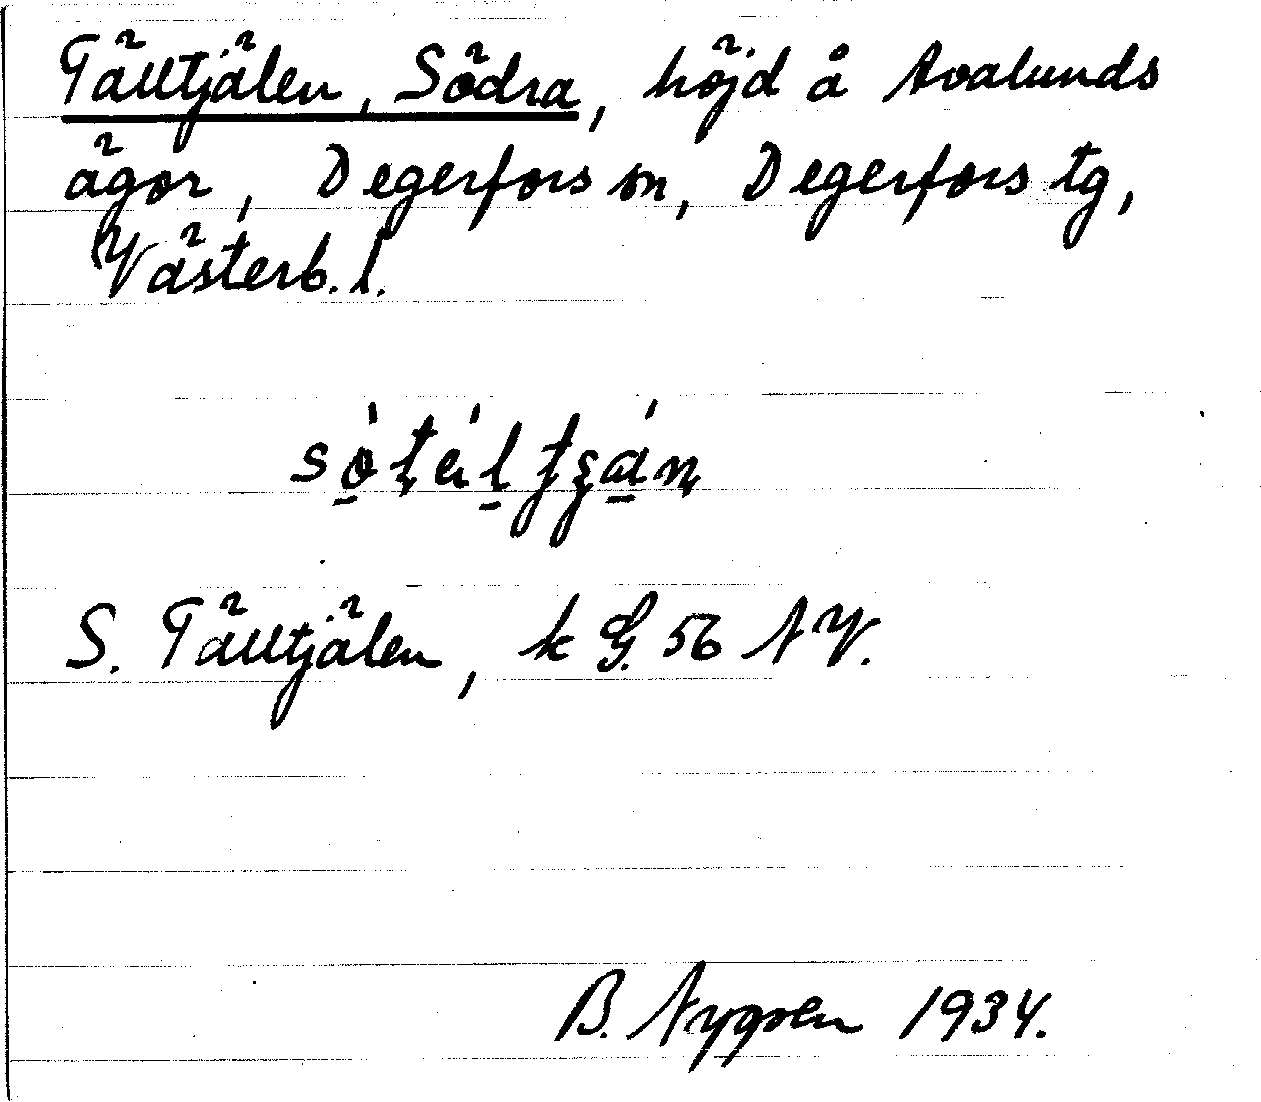 Tälltjälen, Södra, höjd å Avalunds
ägor, Degerfors sn, Degerfors tg,
Västerb. l.
S. Tälltjälen, k G. 56 NV.
B. Nygren 1934.